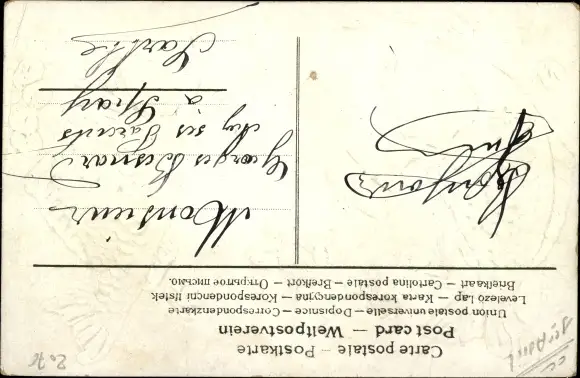 Carte postale – Postkarte
Post card – Weltpostverein
Union postale universelle – Dopisnice – Correspondenzkarte
Levelező Lap – Karta korespondencyjna – Korespondenční lístek
Briefkaart – Cartolina postale – Brefkort – Открытое письмо.
Bonjour
Monsieur
Georges Besnard
chez ses Parents
à Spay
Sarthe